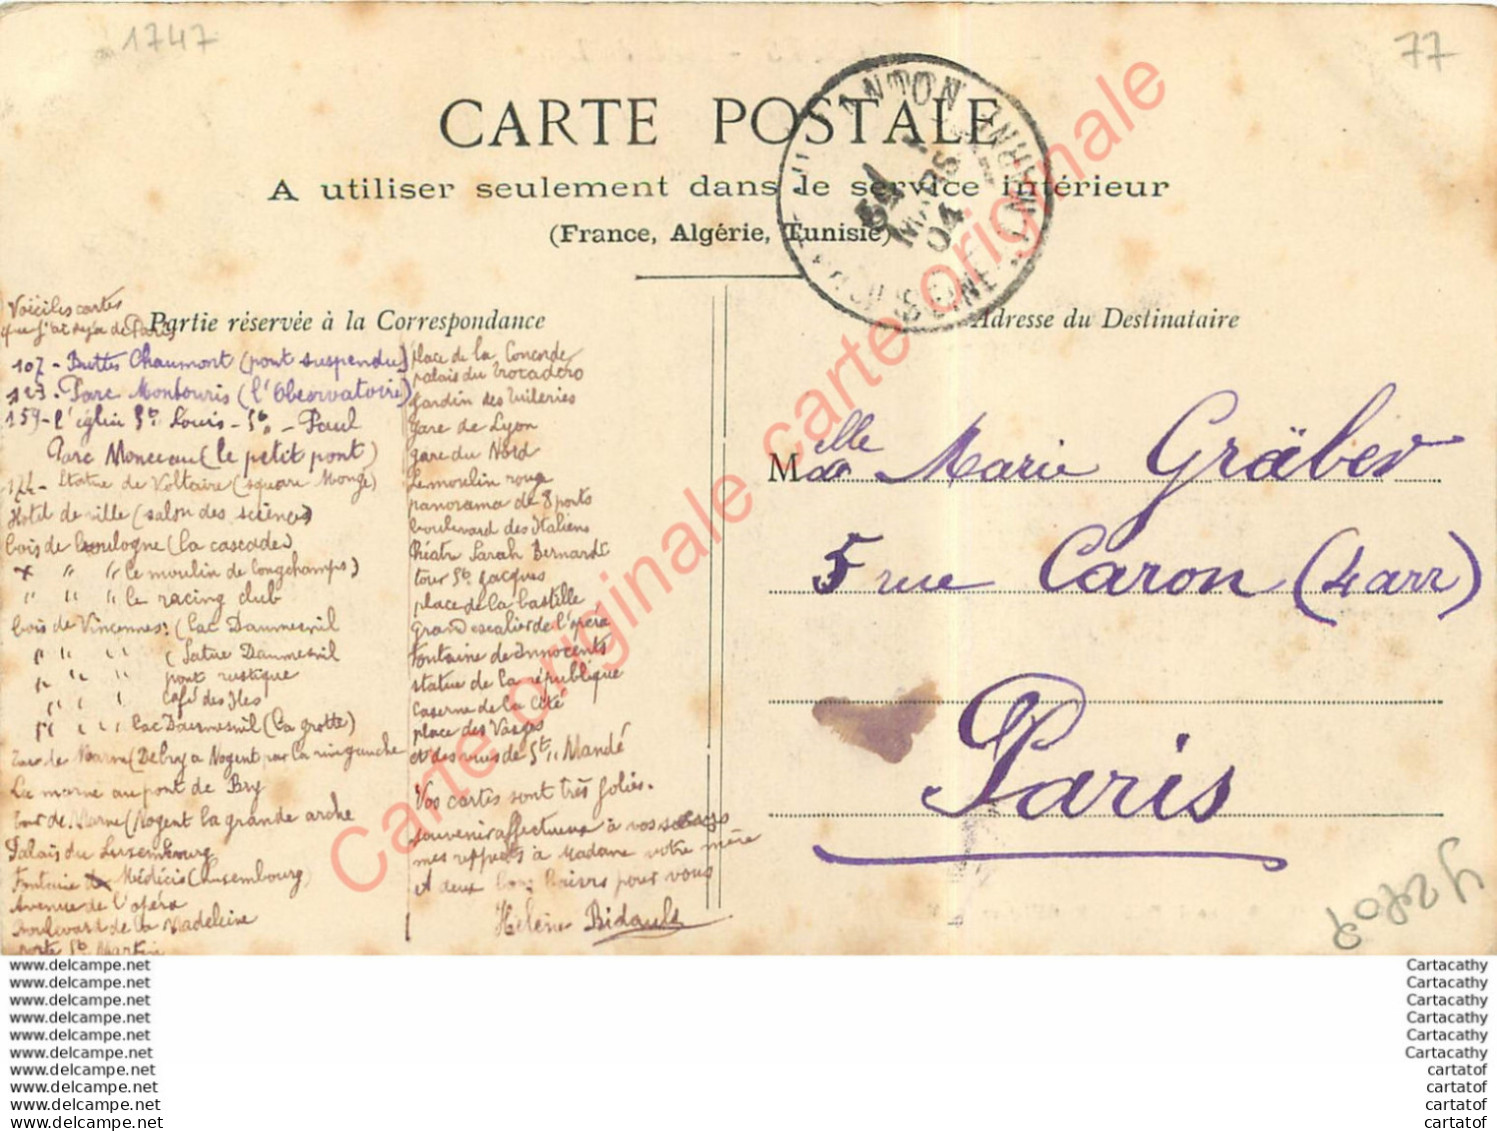 1747
77
CARTE POSTALE
A utiliser seulement dans le service intérieur
(France, Algérie, Tunisie)
ANTON
MARS
04
SEINE
Partie réservée à la Correspondance
Adresse du Destinataire
Voici les cartes
que j'ai deja de Paris
107 - Buttes Chaumont (pont suspendu)
123 - Parc Montouris (l'Observatoire)
159 - l'églin St. Louis - St. - Paul
Parc Monceau (le petit pont)
174 - Statue de Voltaire (square Monge)
Hotel de ville (salon des sciences)
bois de boulogne (la cascade)
" " " (le moulin de longchamps)
" " " (le racing club
bois de Vincennes: (lac Daumesnil
" " " (Satue Daumesnil
" " " pont rustique
" " " café des Iles
" " " lac Daumesnil (la grotte)
de Marne (De Bry a Nogent par la rive gauche
La marne au pont de Bry
tour de Marne (Nogent la grande arche
Palais du Luxembourg
Fontaine Médicis (Luxembourg)
Avenue de l'opéra
Boulevard de la Madeleine
porte St. Martin
place de la Concorde
palais du trocadéro
Jardin des Tuileries
Gare de Lyon
gare du Nord
Le moulin rouge
panorama de 8 ponts
boulevard des Italiens
théatre Sarah Bernardt
tour St. Jacques
place de la bastille
Grand escalier de l'opéra
Fontaine des Innocents
statue de la république
Caserne de la Cité
place des Vosges
et des rues de St. Mandé
Vos cartes sont très jolies.
souvenir affectueux à vos
mes respects à Madame votre mère
et deux bons baisers pour vous
Hélène Bidault
Melle Marie Gräber
5 rue Caron (4 arr)
Paris
y2807
Carte originale carte originale
www.delcampe.net
www.delcampe.net
www.delcampe.net
www.delcampe.net
www.delcampe.net
www.delcampe.net
www.delcampe.net
www.delcampe.net
www.delcampe.net
www.delcampe.net
Cartacathy
Cartacathy
Cartacathy
Cartacathy
Cartacathy
Cartacathy
cartatof
cartatof
cartatof
cartatof